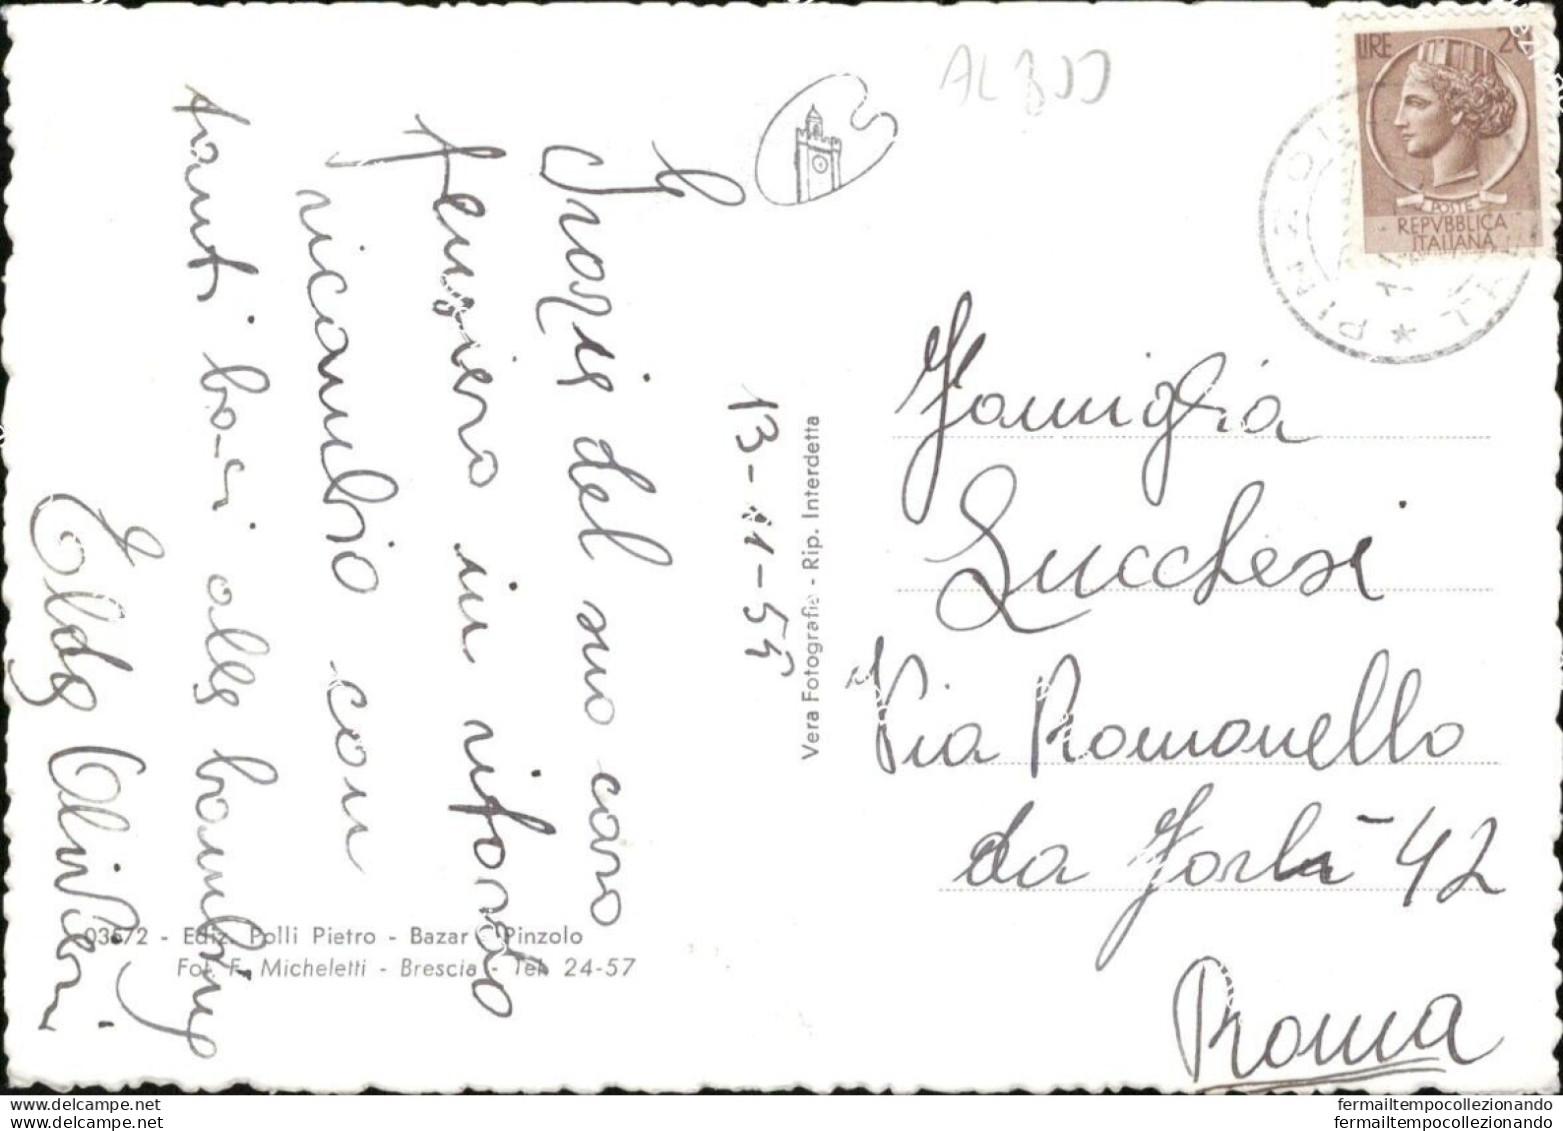 Grazie del suo caro
pensiero in ritardo
ricambio con
tanti baci alle bambine
Elda Olivieri
13-11-54
Vera Fotografia - Rip. Interdetta
03672 - Ediz. Polli Pietro - Bazar - Pinzolo
Fot. F. Micheletti - Brescia - Tel. 24-57
LIRE 20
POSTE
REPVBBLICA
ITALIANA
PINZOLO
Famiglia
Lucchesi
Via Romanello
da Forlì - 42
Roma
fermailtempocollezionando
fermailtempocollezionando
www.delcampe.net
www.delcampe.net